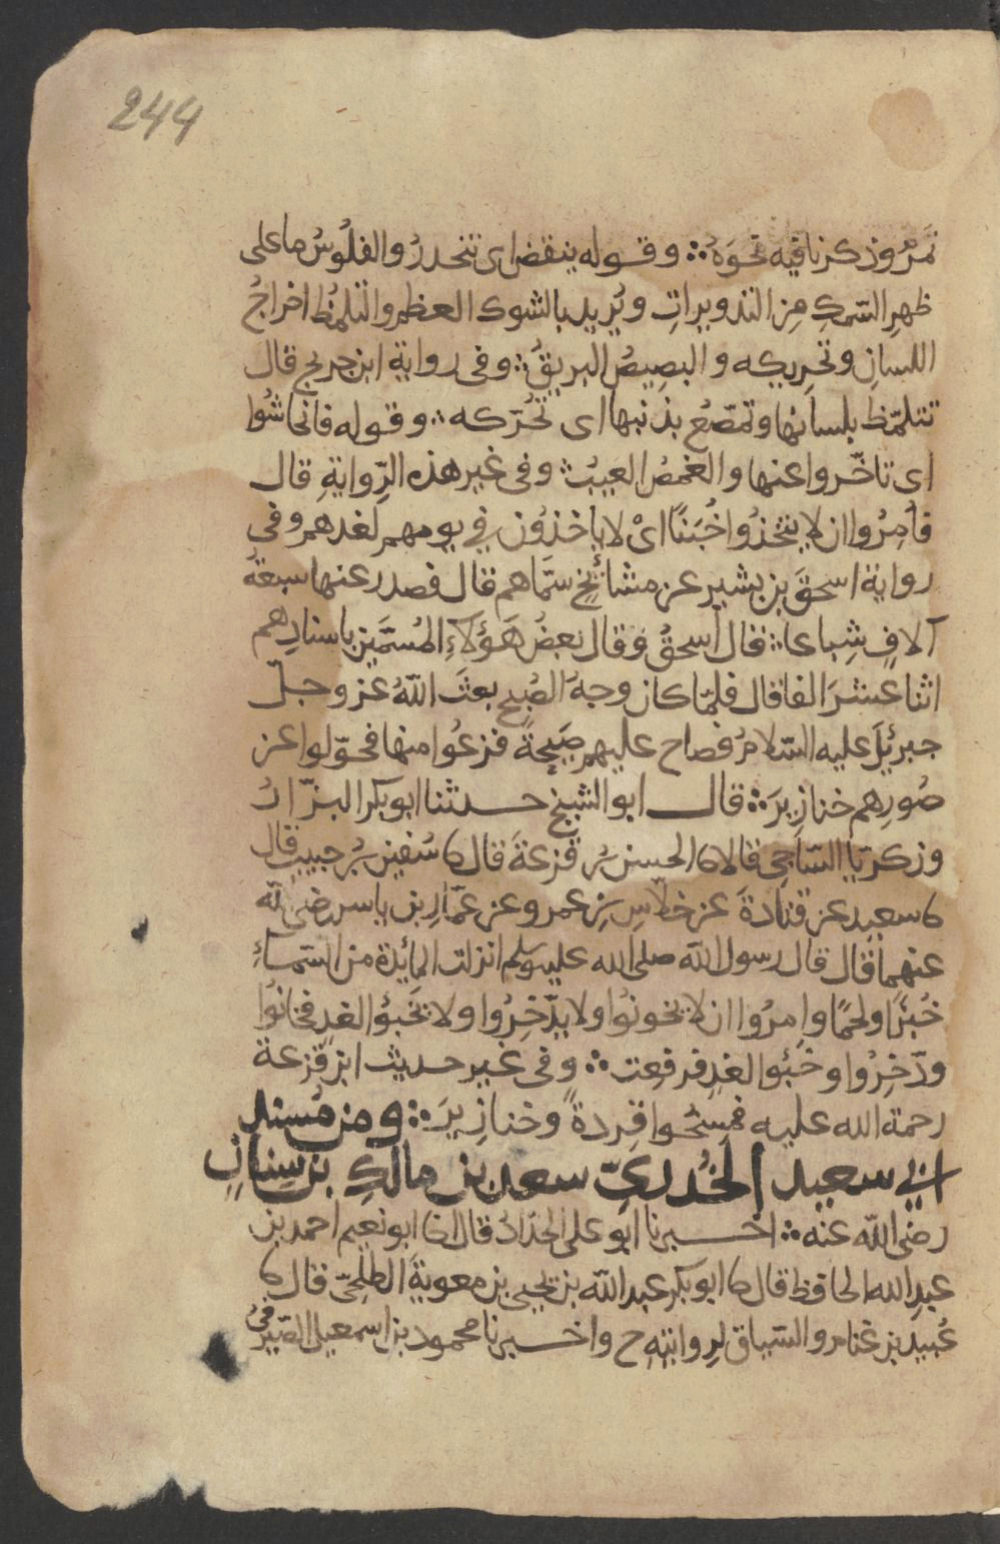 244
تَمَرُّ وذكرنا فيه نحوَهُ ∴ وقوله ينقض اى تنحدرُ والفلُوسُ ما على
ظهرِ السَّمكِ مِن التدويراتِ ويُريد بالشوك العظم والتلمُّظُ اخراجُ
اللسانِ وتحرِيكه والبصِيصُ البريقُ ∴ وفى رواية ابن جريج قال
تتلمّظ بلسانها وتمصَعُ بذنبها اى تُحُرّكه ∴ وقوله فانحاشُوا
اى تاخّروا عنها والغمصُ العيبُ ∴ وفى غير هذه الرِّوايةِ قال
فأُمِرُوا ان لا يتخذُوا خُبَنًا اىْ لا ياخذُون في يومهم لغدهم وفى
رواية اسحقَ بن بشير عن مشائخٍ سمَّاهم قال فصدر عنها سبعةُ
آلافٍ شِباعا ∴ قال اسحقُ وقال بعضُ هَؤُلآءِ المُسمَّين باسنادِهم
اثنا عشرَ الفا قال فلمّا كان وجهُ الصُبحِ بعثَ اللّٰهُ عزوجلّ
جبرئيلَ عليه السّلامُ فصاح عليهم صَيحةً فزعُوا منها فحوّلوا عن
صُورِهم خنازِيرَ ∴ قال ابو الشيخ حدثنا ابو بكر البزّارُ
وزكريّا السّاجى قالا نا الحسن بن قزعةَ قال نا سُفين بن حبيب قال
نا سعيد عن قتادةَ عن خلاسِ بن عمرو عن عمّارِ بن ياسر رضى اللّه
عنهما قال قال رسول اللّه صلى الله عليه وسلم انزلت المائدة من السّماءِ
خُبزًا ولحمًا وامِرُوا ان لا يخونُوا ولا يدّخِرُوا ولا يَخبَؤُا لغدٍ فخانُوا
ودّخِرُوا وخَبَئُوا لغدٍ فرفعت ∴ وفى غير حديث ابن قزعة
رحمة الله عليه فمسِخُوا قِردةً وخنازِيرَ ∴ ومن مُسند
ابي سعيد الخُدريّ سعد بن مالكِ بن سِنانٍ
رضى اللّه عنه ∴ اخبرنا ابو على الحدّادُ قال انا ابو نعيم احمد بن
عبدِ الله الحافظ قال نا ابو بكر عبد اللّه بن يحيى بن معويةَ الطلحىّ قال نا
عُبيد بن غنام والسّياق لروايتِهِ ح واخبرنا محمود بن اسمعيل الصّيرفىُّ